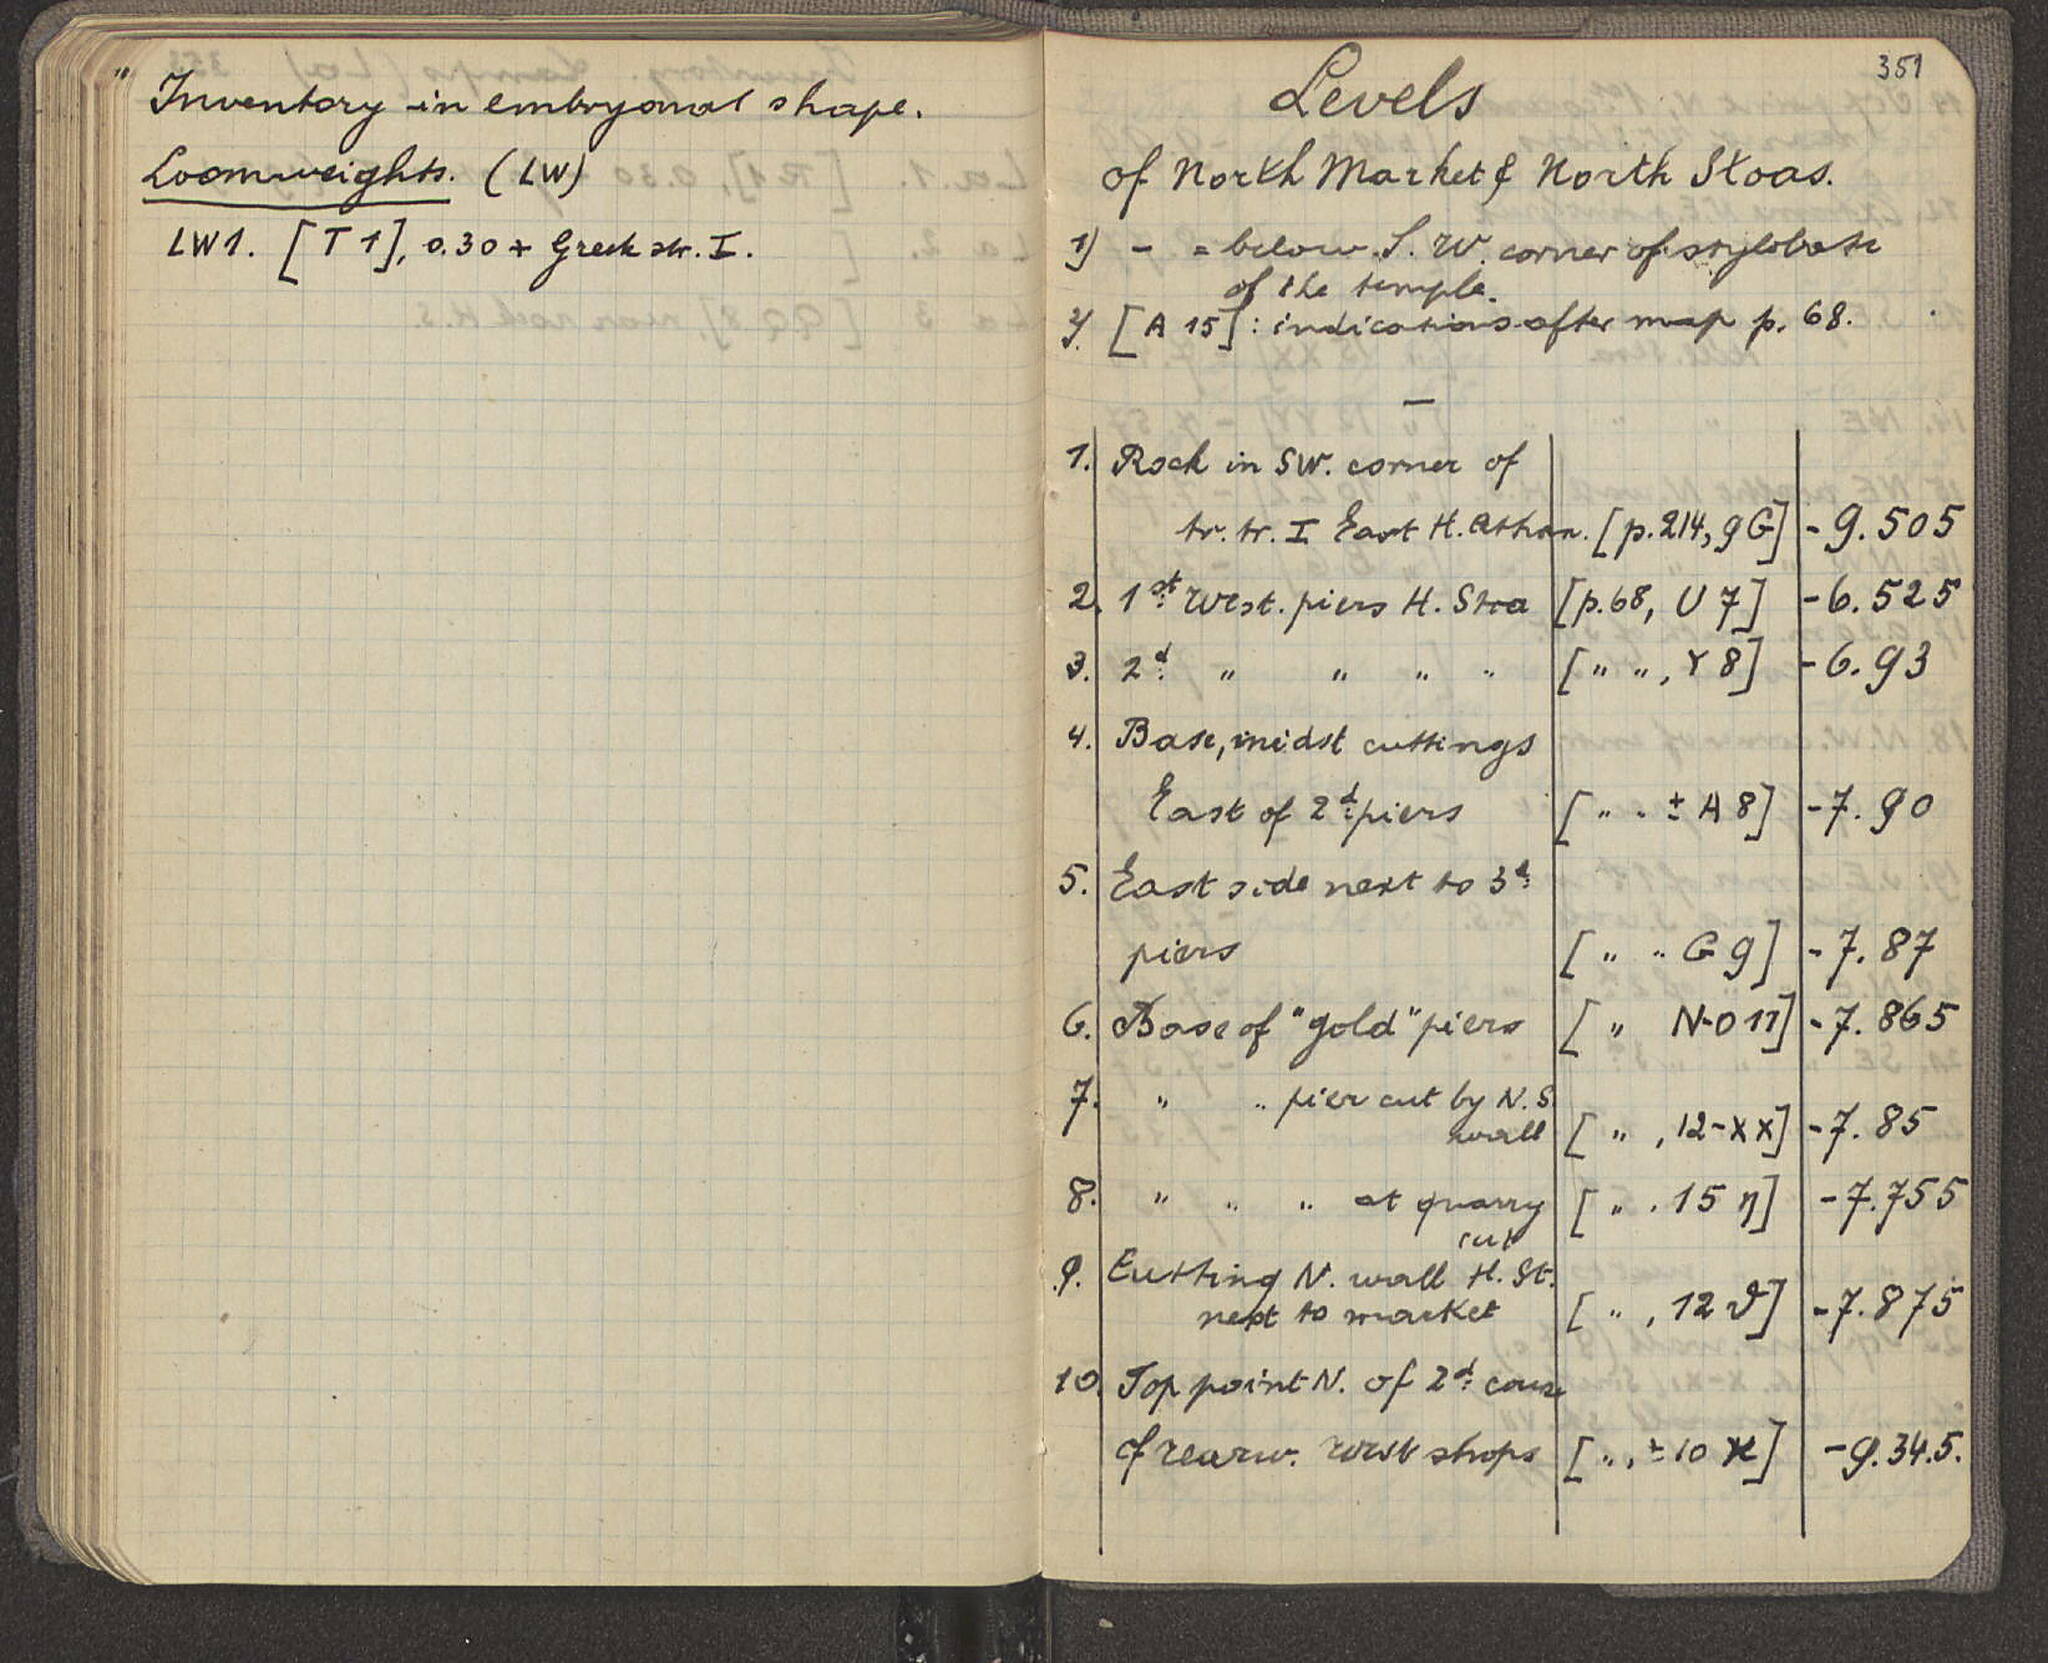 " Inventory in embryonal shape.
Loomweights. (LW)
LW1. [T 1], 0.30 + Greek str. I.
351
Levels
of North Market & North Stoas.
1) - = below S. W. corner of stylobate
of the temple.
2) [A 15]: indications after map p. 68.
—
1. Rock in SW. corner of
tr. tr. I East H. Athan. [p. 214, 9G] -9.505
2. 1st: West. piers H. Stoa [p. 68, U 7] -6.525
3. 2d: " " " " [" ", Y 8] -6.93
4. Base, midst cuttings
East of 2d: piers [" " ± A 8] -7.90
5. East side next to 3d:
piers [" " G 9] -7.87
6. Base of "gold" piers [" N-O 11] -7.865
7. " " pier cut by N. S.
wall [" , 12-XX] -7.85
8. " " " at quarry [" . 15 η] -7.755
cut
9. Cutting N. wall H. St.
next to market [" , 12 ϑ] -7.875
10. Top point N. of 2d: course
of rearw. West shops [" , ± 10 ϰ] -9.34.5.